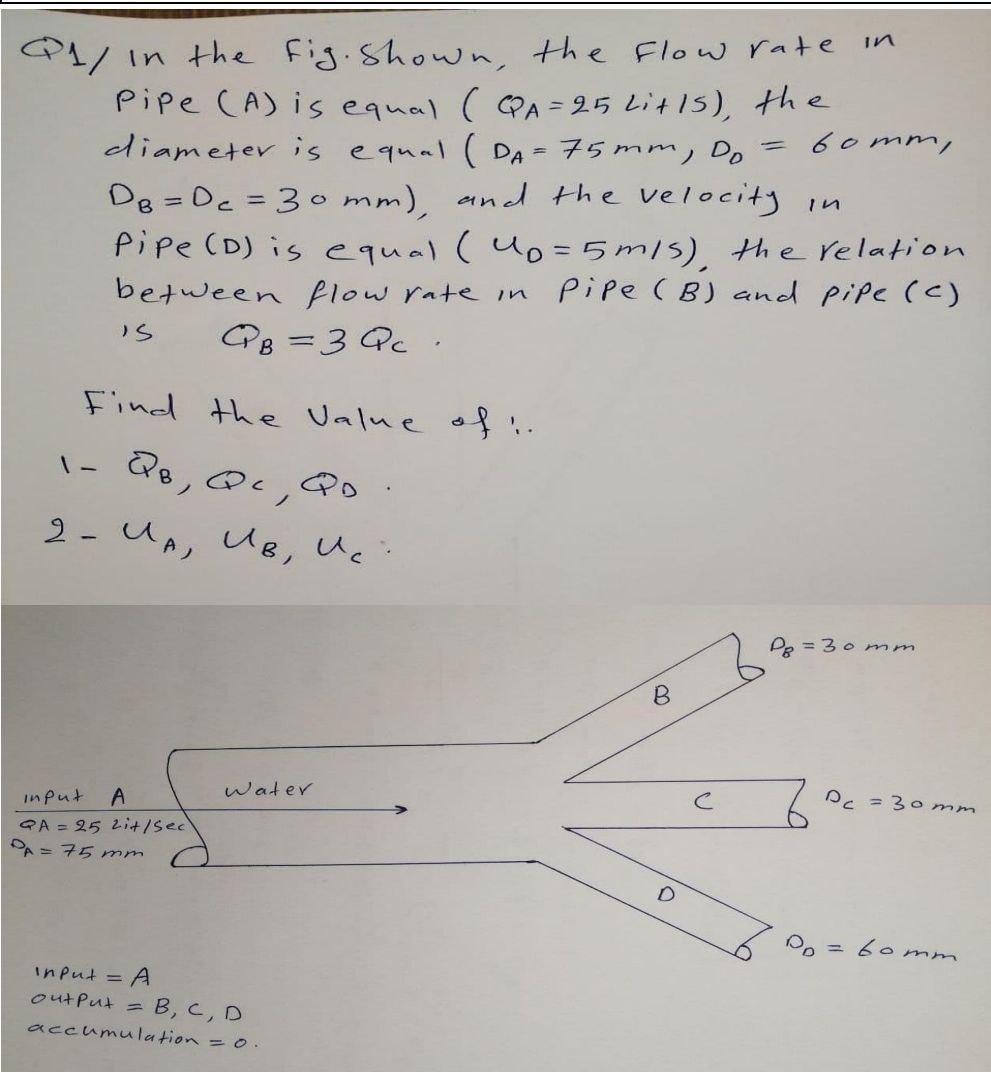 Q1/ in the Fig. Shown, the Flow rate in
Pipe (A) is equal ( QA = 25 Lit/S), the
diameter is equal ( DA = 75 mm, DD = 60 mm,
DB = DC = 30 mm), and the velocity in
Pipe (D) is equal ( uD = 5 m/s), the relation
between flow rate in Pipe (B) and pipe (C)
is QB = 3 QC .
Find the Value of :.
1- QB, QC, QD .
2- UA, UB, UC .
DB = 30 mm
B
input A
Water
C
DC = 30 mm
QA = 25 Lit/Sec
DA = 75 mm
D
DD = 60 mm
input = A
output = B, C, D
accumulation = 0.